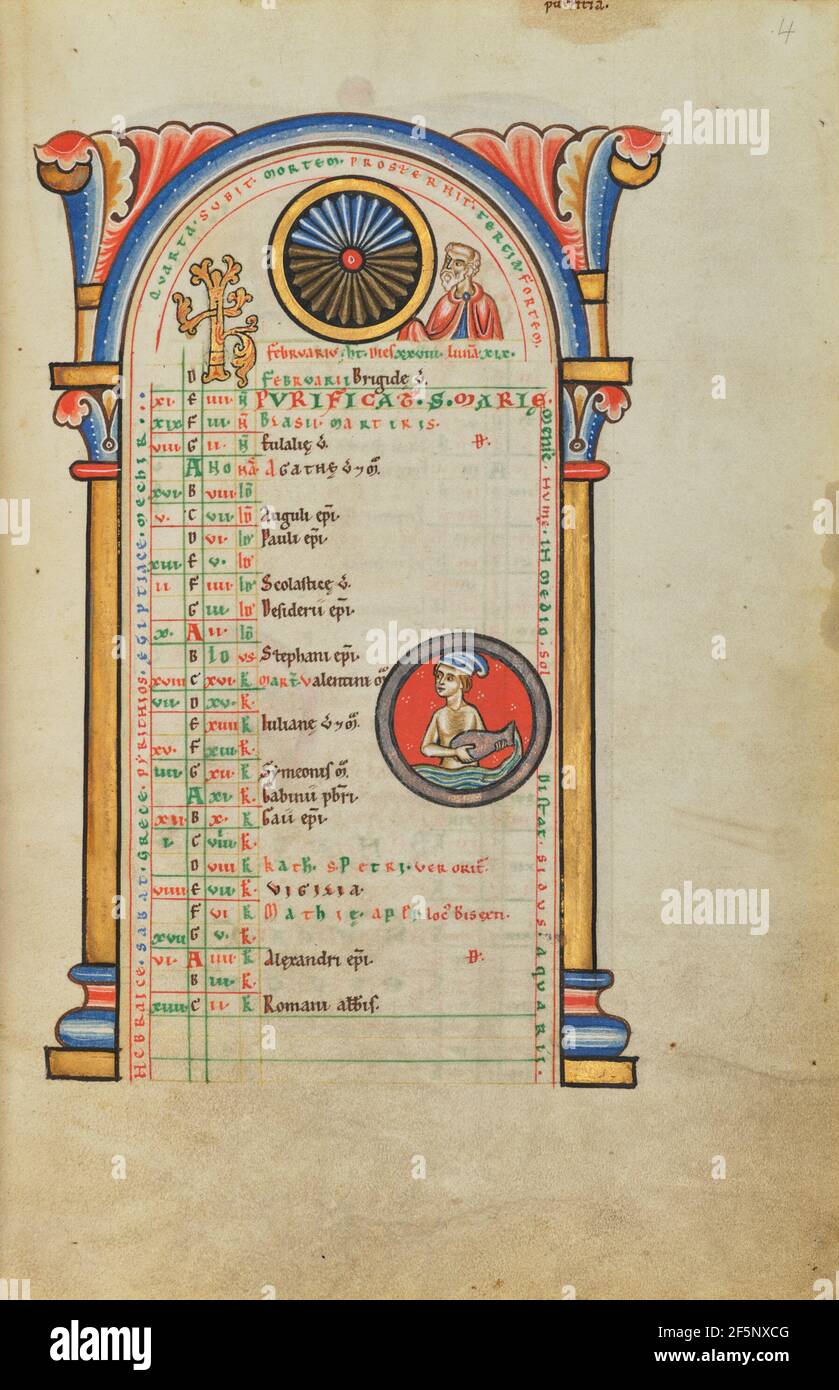 4
QVARTA · SVBIT · MORTEM · PROSTERNIT · TERCIA · FORTEM ·
februarius · ht · dies xxviii · luna · xix ·
D februarii Brigide v̄.
xi · E iiii · N̄ PVRIFICAT · S · MARIE ·
xix · F iii · N̄ Blasii martiris ·
viii · G ii · N̄ Eulalie v̄. D ·
A NO NĀ Agathę v̄ 7 m̄.
xvi · B viii · id
v · C vii · id Auguli ep̄i ·
D vi · id Pauli ep̄i ·
xiii · E v · id
ii F iiii · id Scolastice v̄.
G iii · id Desiderii ep̄i ·
x · A ii · id
B ID VS Stephani ep̄i ·
xviii C xvi · k mart · Valentini m̄
vii · D xv · k ·
E xiiii k Iulianę v̄ 7 m̄.
xv · F xiii · k ·
iiii · G xii · k Symeonis m̄.
A xi · k · Gabinii pb̄ri ·
xii B x · k Gaii ep̄i ·
i · C viiii k ·
D viii k kath · S · Petri · Ver orit ·
viiii · E vii · k · VIGILIA ·
F vi k Mathię · ap̄li · loc̄ Bisexti ·
xvii G v · k ·
vi · A iiii · k Alexandri ep̄i · D ·
B iii · k ·
xiiii · C ii · k Romani abbis ·
HEBRAICE · SABAT · GRECE · PYRITHIOS · EGIPTIACE · MECHIR ·
MENSE · NUMĘ · IN MEDIO · SOL
DISTAT · SIDUS · AQUARII ·
alamy
alamy
Image ID: 2F5NXCG
www.alamy.com